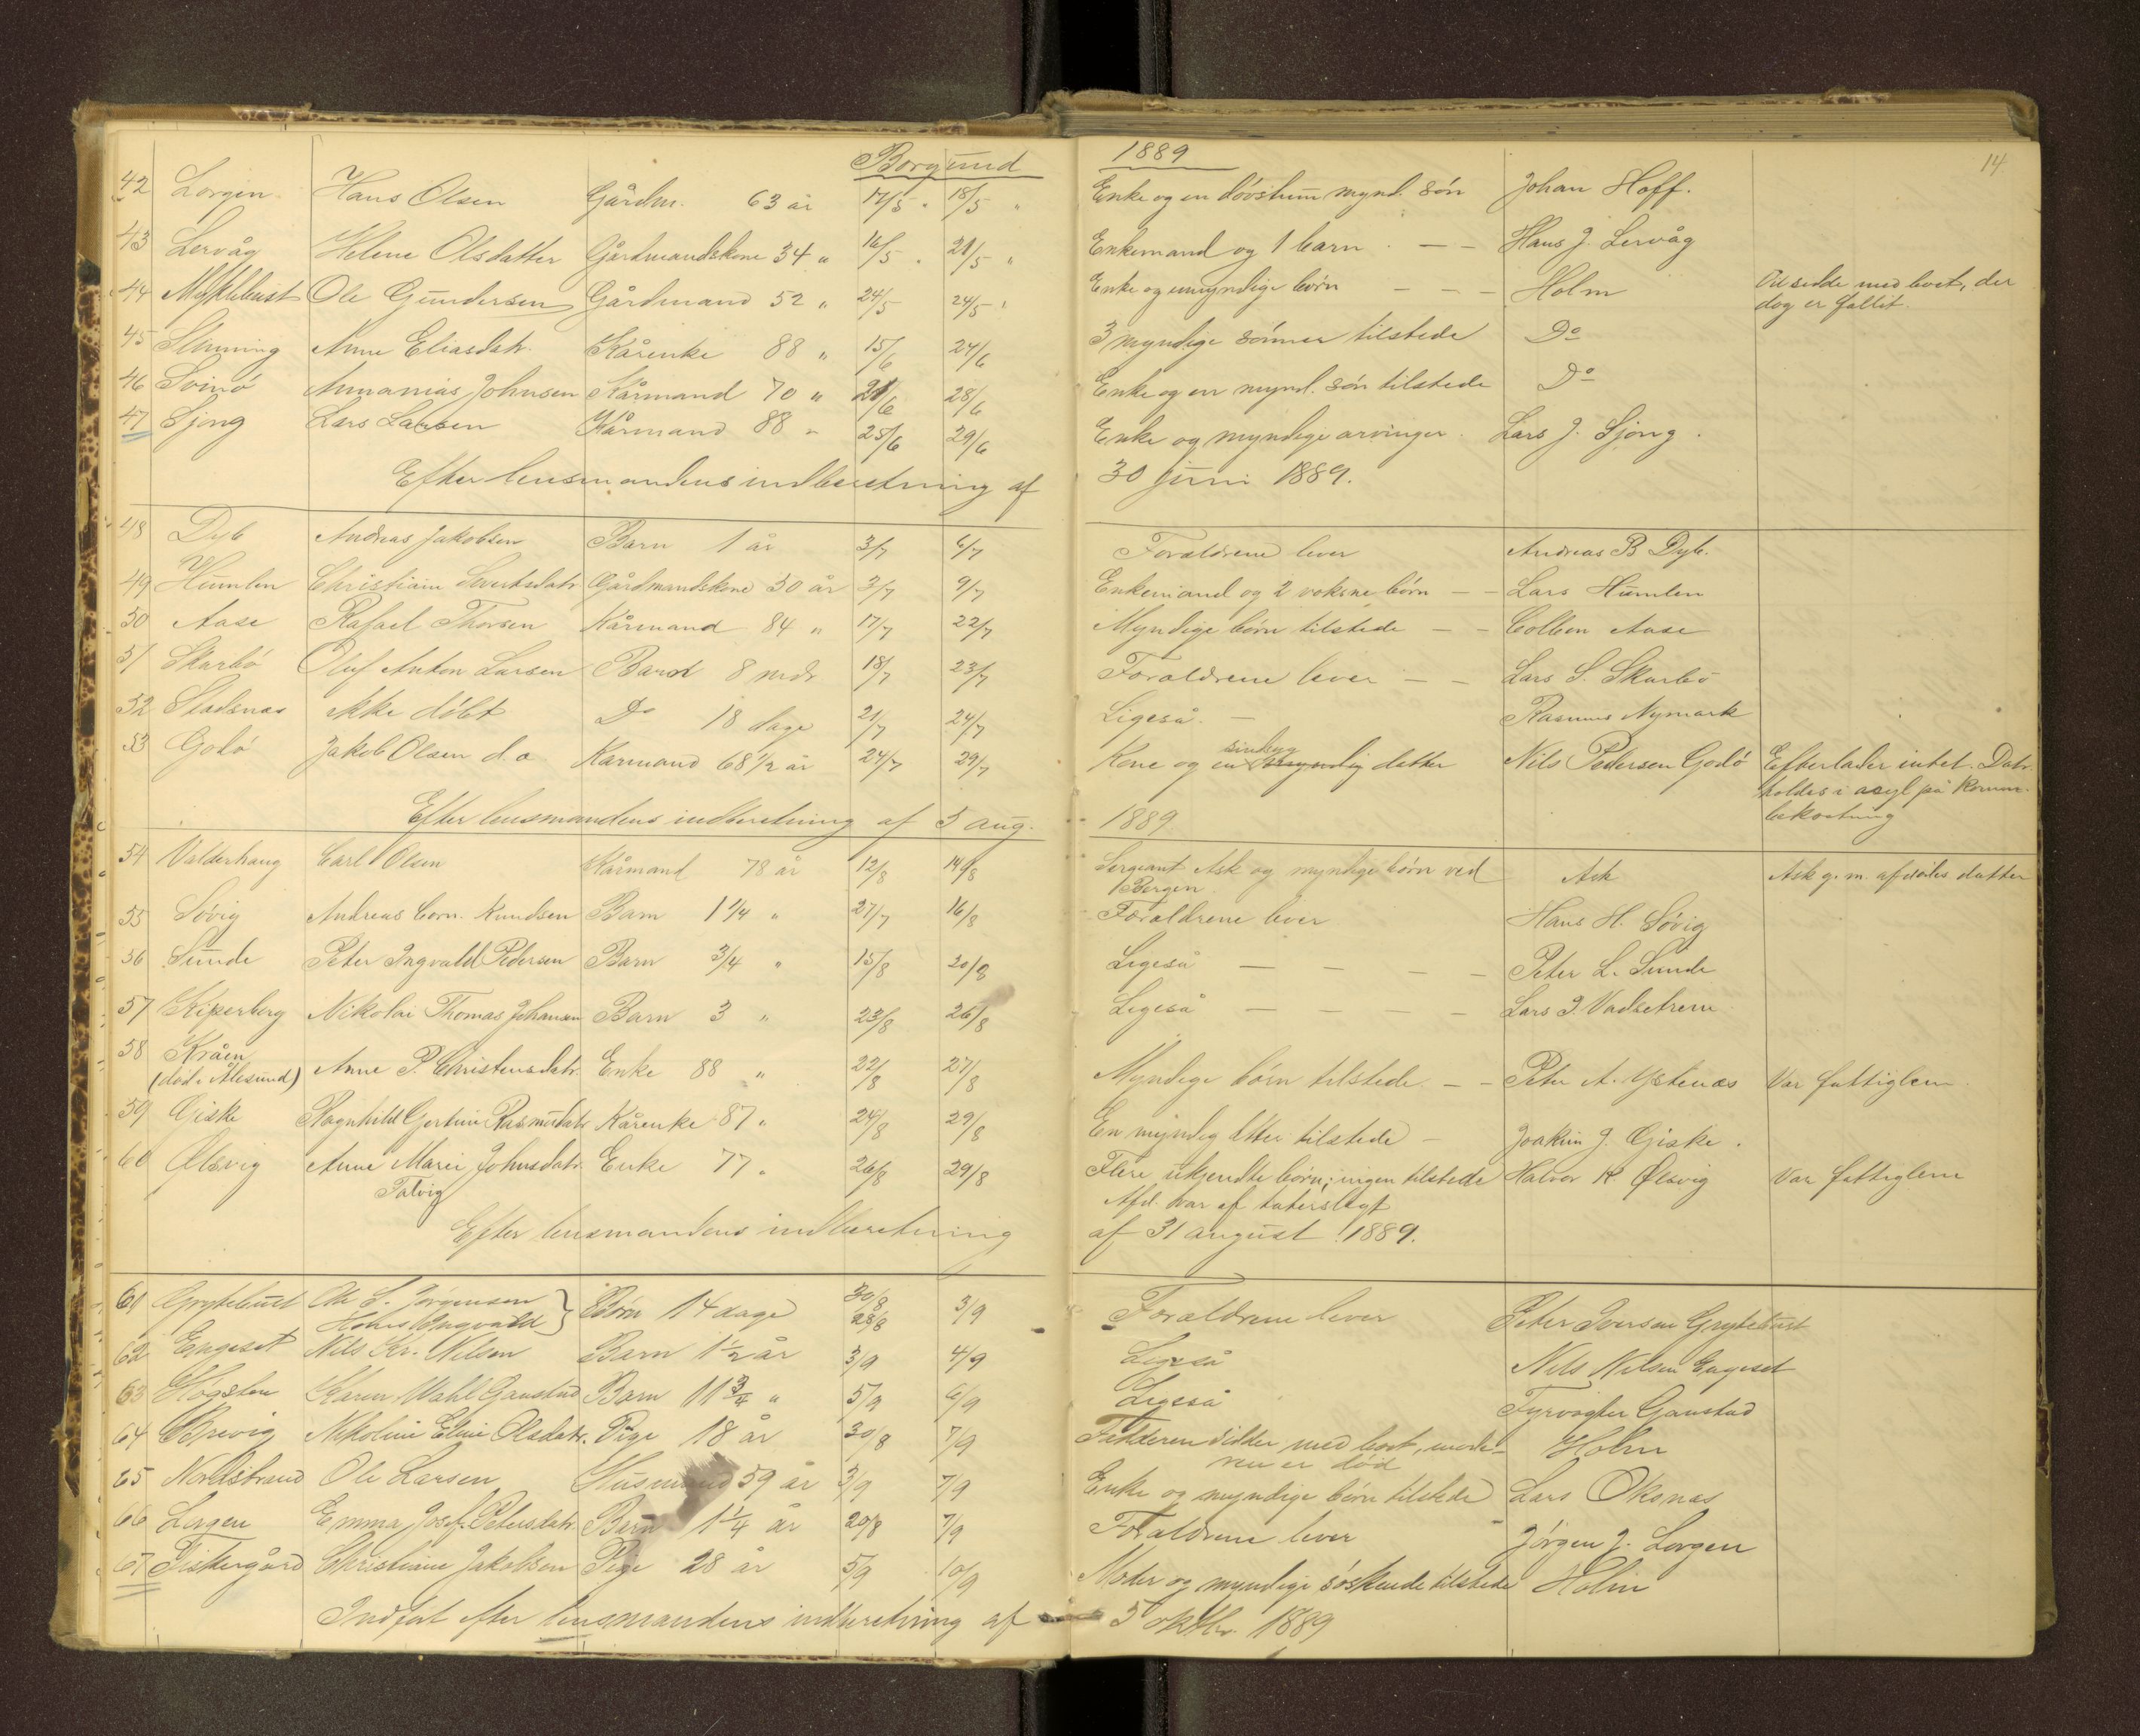 Borgund 1889 14
42 Lorgen Hans Olsen Gårdm. 63 år 17/5 " 18/5 " Enke og en dövstum mynd. sön Johan Hoff.
43 Lervåg Helene Olsdatter Gårdmandskone 34 " 16/5 " 21/5 " Enkemand og 1 barn. — — Hans J. Lervåg
44 Myklebust Ole Gundersen Gårdmand 52 " 24/5 24/5 " Enke og umyndige börn — — — Holm sidde med boet, der
dog er fallit.
45 Slinning Anne Eliasdatr. Kårenke 88 " 15/6 24/6 3 myndige sönner tilstede Do
46 Svinö Annanias Johnsen Kårmand 70 " 21/6 28/6 Enke og en mynd. sön tilstede Do
47 Sjong Lars Larsen Kårmand 88 " 25/6 29/6 Enke og myndige arvinger. Lars J. Sjong.
Efter lensmandens indberetning af 30 juni 1889.
48 Dyb Andreas Jakobsen Barn 1 år 3/7 6/7 Forældrene lever Andreas B Dyb.
49 Humlen Christiane Sivertsdatr. Gårdmandskone 30 år 3/7 9/7 Enkemand og 2 voksne börn — — Lars Humlen
50 Aase Rafael Thorsen Kårmand 84 " 17/7 22/7 Myndige börn tilstede — — Colben Aase
51 Skarbö Oluf Anton Larsen Barn 8 mdr 18/7 23/7 Forældrene lever — — Lars S. Skarbö
52 Stadsnæs ikke döbt Do 18 dage 21/7 24/7 Ligeså. — Rasmus Nymark
53 Godö Jakob Olsen d.æ. Kårmand 68 1/2 år 24/7 29/7 Kone og en sindsyg myndig datter Nils Pedersen Godö Efterlader intet. Datr.
holdes i asyl på Komm.
bekostning
Efter lensmandens indberetning af 5 aug. 1889
54 Valderhaug Carl Olsen Kårmand 78 år 12/8 14/8 Sergeant Ask og myndige börn ved
Bergen. Ask Ask g. m. afdödes datter
55 Sövig Andreas Corn. Knudsen Barn 1 1/4 " 27/7 16/8 Forældrene lever Hans H. Sövig
56 Sunde Peter Ingvald Pedersen Barn 3/4 " 15/8 20/8 Ligeså — — — — Peter L. Sunde
57 Kiperberg Nikolai Thomas Johansen Barn 3 " 23/8 26/8 Ligeså — — — — Lars J. Vadsetrem
58 Kråen
(död i Ålesund) Anne P. Christensdatr. Enke 88 " 22/8 27/8 Myndige börn tilstede. — — Peter A. Ystenæs Var fattiglem.
59 Giske Ragnhild Gjertine Rasmusdatr. Kårenke 87 " 24/8 29/8 En myndig dtter tilstede — Joakim J. Giske.
60 Ølsvig Anne Marei Johnsdatr. Enke 77 " 26/8 29/8 Flere ukjendte börn; ingen tilstede Halvor K. Ølsvig Var fattiglem
Talvig Afd. var af taterslegt
Efter lensmandens indberetning af 31 august 1889.
61 Grytebust Ole S. Jörgensen
Ingvald } Börn 14 dage 30/8 28/8 3/9 Forældrene lever Peter Iversen Grytebust
62 Engeset Nils Kr. Nilsen Barn 1 1/2 år 3/9 4/9 Ligeså Nils Nilsen Engeset
63 Högsten Karen Wahl Ganstad Barn 11 3/4 " 5/9 6/9 Ligeså Fyrvogter Ganstad
64 Brevig Nikoline Eline Olsdatr. Pige 18 år 30/8 7/9 Faderen sidder med boet, mode-
ren er död Holm
65 Nordstrand Ole Larsen Husmand 59 år 3/9 7/9 Enke og myndige börn tilstede Lars Oksnæs
66 Lorgen Emma Josef. Petersdatr. Barn 1 1/4 år 20/8 7/9 Forældrene lever Jörgen J. Lorgen
67 Fiskergård Christiane Jakobsen Pige 28 år 5/9 10/9 Moder og myndige söskende tilstede Holm
Indfört efter lensmandens indberetning af 5 oktbr. 1889